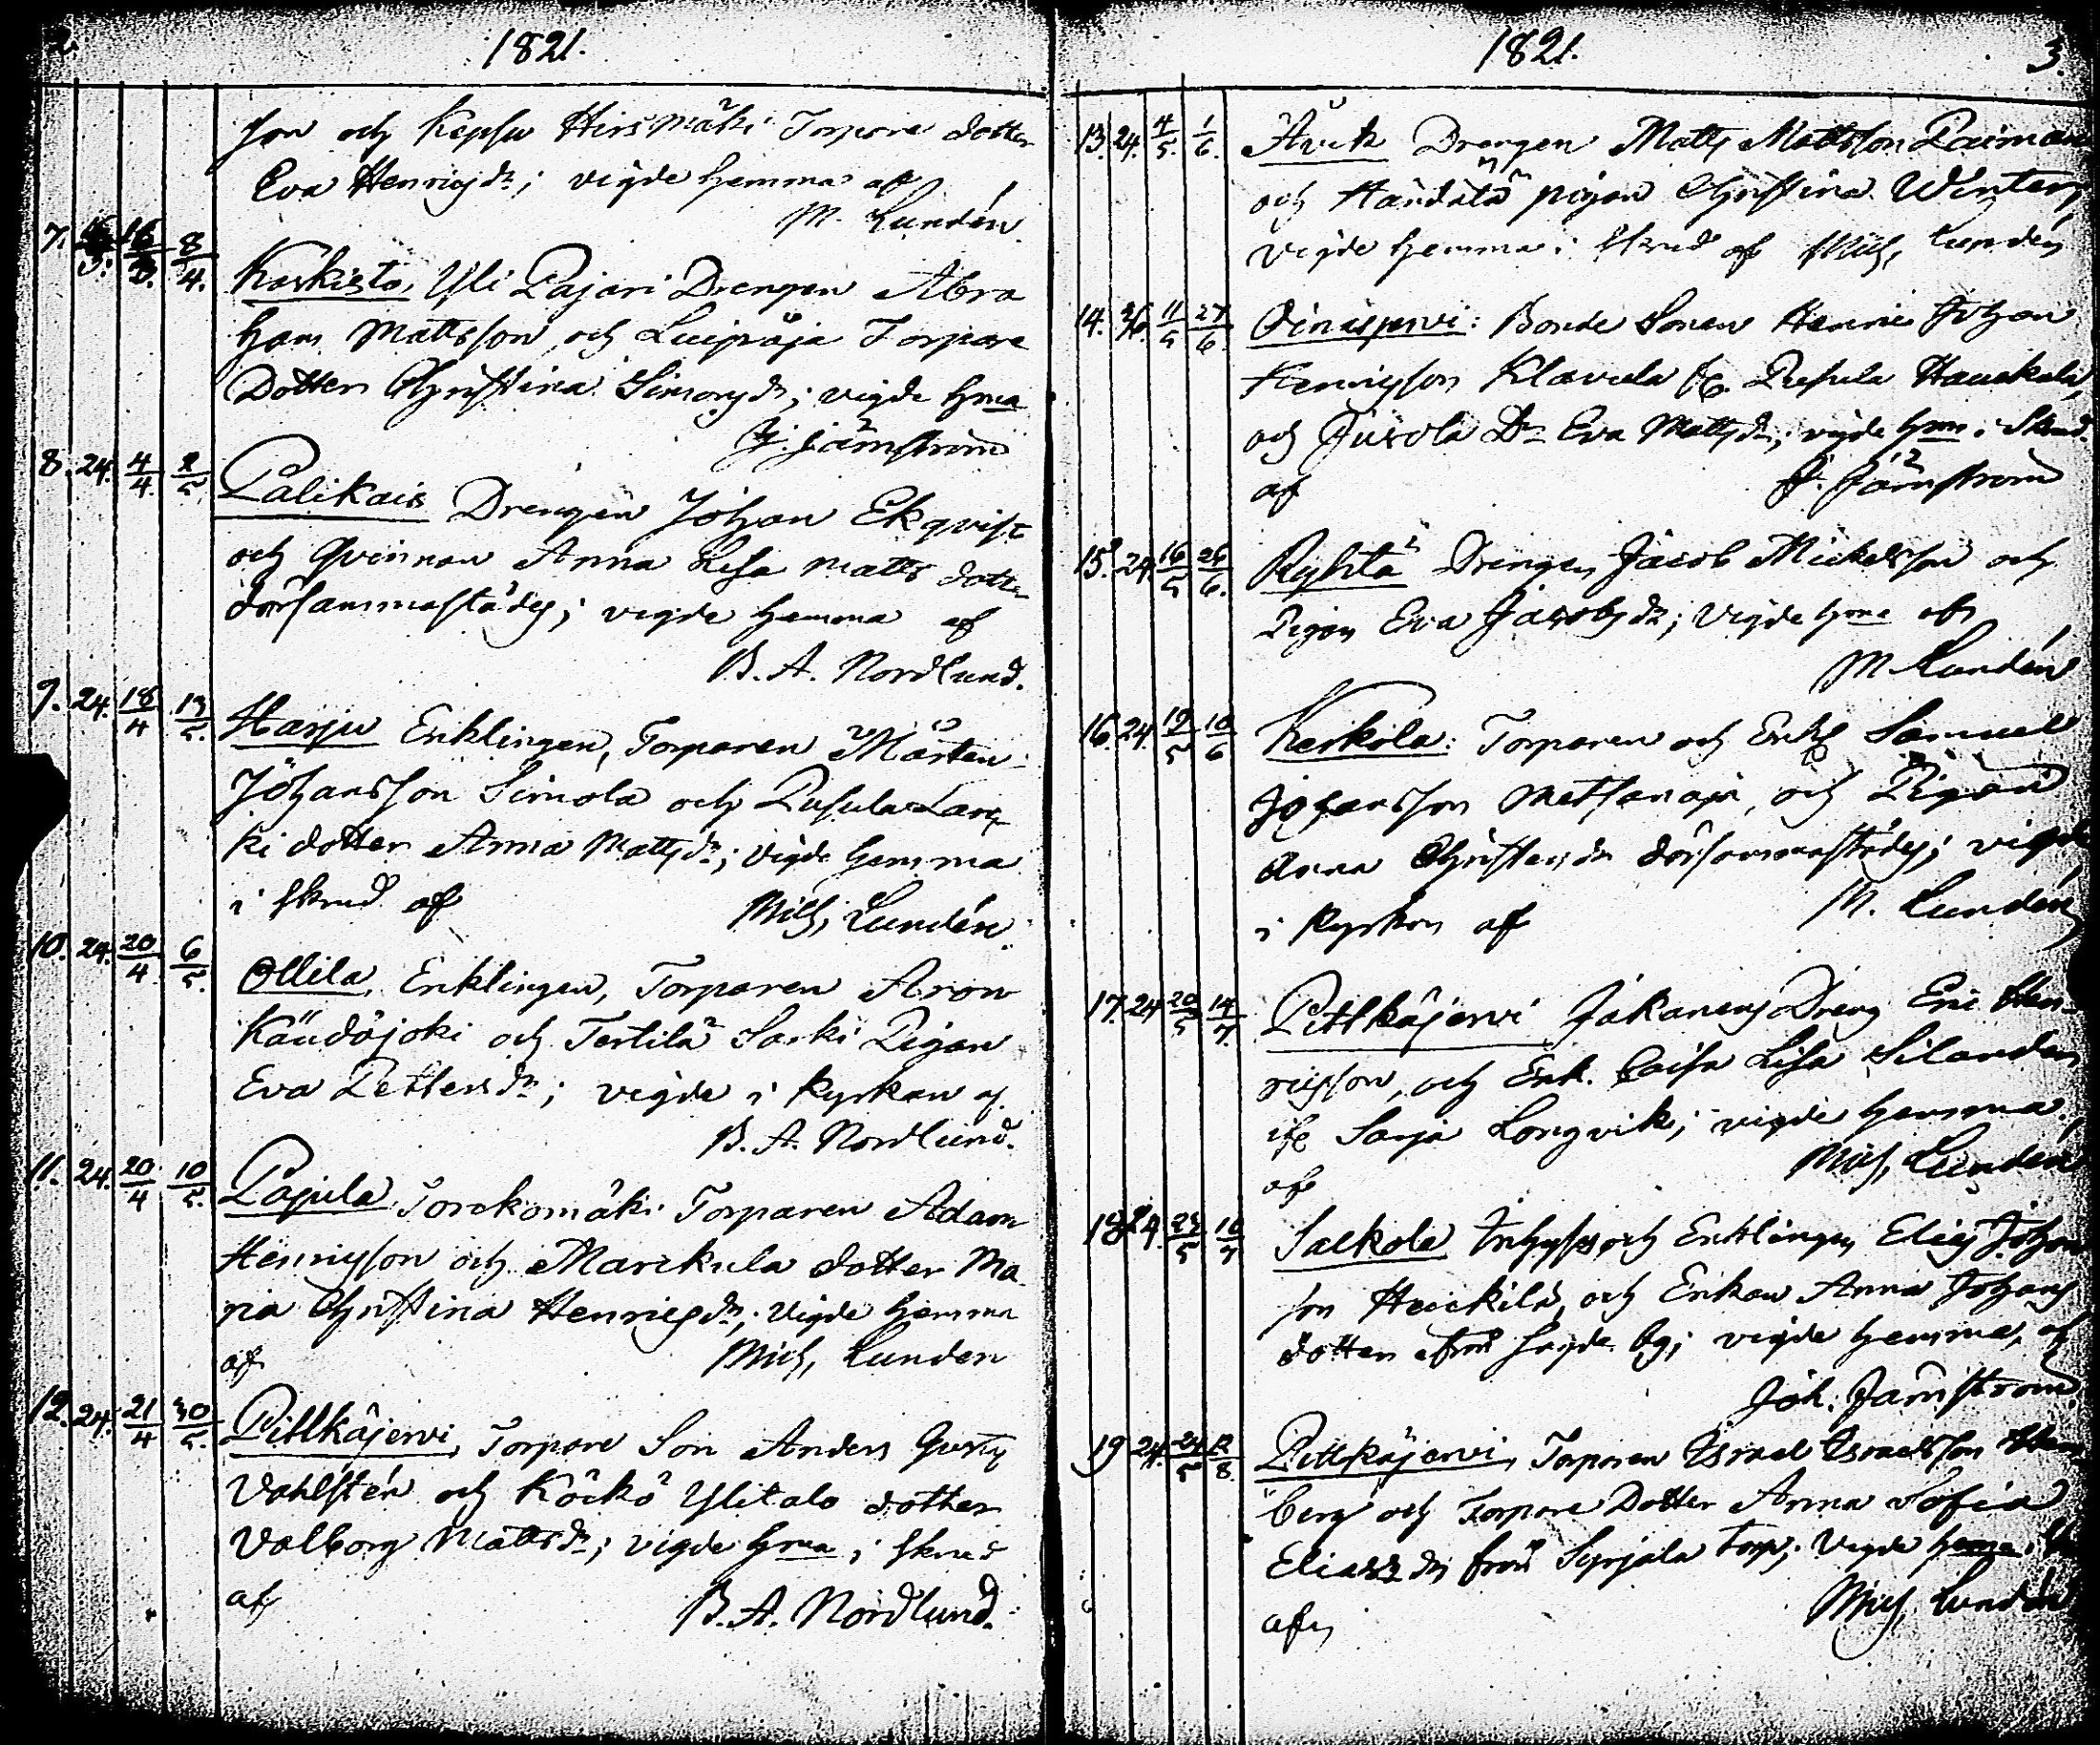 2.
1821.
son och Kepsu Hirsmäki Torpare dotter
Eva Henricsdr; vigde hemma af
M. Lundén
7. 16/3. 8/4. Koskisto, Yli Pajari Drengen Abra
ham Mattsson, och Luipiöja Torpare
Dotter Christina Simonsdr; vigde hma
J. Järnström
8. 24. 4/4. 2/5. Palikais Drengen Johan Ekqvist
och Qvinnan Anna Lisa Matts dotter
dörsammastädes; vigde hemma af
B. A. Nordlund.
9. 24. 18/4 13/5. Harju Enklingen, Torparen Mårten
Johansson Simola och Pusula Lau
ki dotter Anna Mattsdr; vigde hemma
i skrud af Mich, Lundén
10. 24. 20/4 6/5. Ollila, Enklingen, Torparen Aron
Käudöjoki och Tertilä Sarki Pigan
Eva Pettersdr; vigde i Kyrkan af
B. A. Nordlund.
11. 24. 20/4 10/5. Papula Torckomäki Torparen Adam
Henricsson och Marckula dotter Ma
ria Christina Henricsdr; vigde hemma
af Mich, Lundén
12. 24. 21/4 30/5. Pitkäjervi, Torpare Son Anders Gustaf
Vahlstén och Köckö Ylitalo dotter
Valborg Mattsdr; vigde hma i skrud
af B. A. Nordlund.
1821.
3.
13. 24. 4/5. 1/6. Åvik Drengen Matts Mattsson Paiman
och Händälä pigan Christina Winter
vigde hemma i skrud af Mich, Lundén
14. 24. 11/5 27/6. Oinasjervi: Bonde Sonen Henric Johan
Henricsson Klavula fr. Pusula Hauckala,
och Jusola Dr Eva Mattsdr; vigde hma i Skrud.
af J. Järnström
15. 24. 16/5 26/6. Ryhtä Drengen Jacob Mickelsson och
Pigan Eva Jacobsdr; vigde hma af
M Lundén
16. 24. 19/5 10/6 Kerkola: Torparen och Enkl Samuel
Johansson Metsänoja, och Pigan
Anna Christersdr dörsammastädes; vigde
i Kyrkan af M. Lundén
17. 24 20/5 14/7. Pitkäjervi Jakanens Dreng Eric Hen-
ricsson, och Enk. Caisa Lisa Silander
ifr Sarja Longvik; vigde hemma
af Mich, Lundén
18. 24. 23/5 10/7 Salkola Inhyses och Enklingen Elias Johans
son Heickilä, och Enkan Anna Johans
dotter från sagde by; vigde hemma, af
Joh: Järnström
19 24. 24/5 12/8. Pitkäjervi, Torparen Israel Israelsson
berg och Torpare Dotter Anna Sofia
Eliasdr från Syrjälä torp; vigde hema
af Mich, Lundén